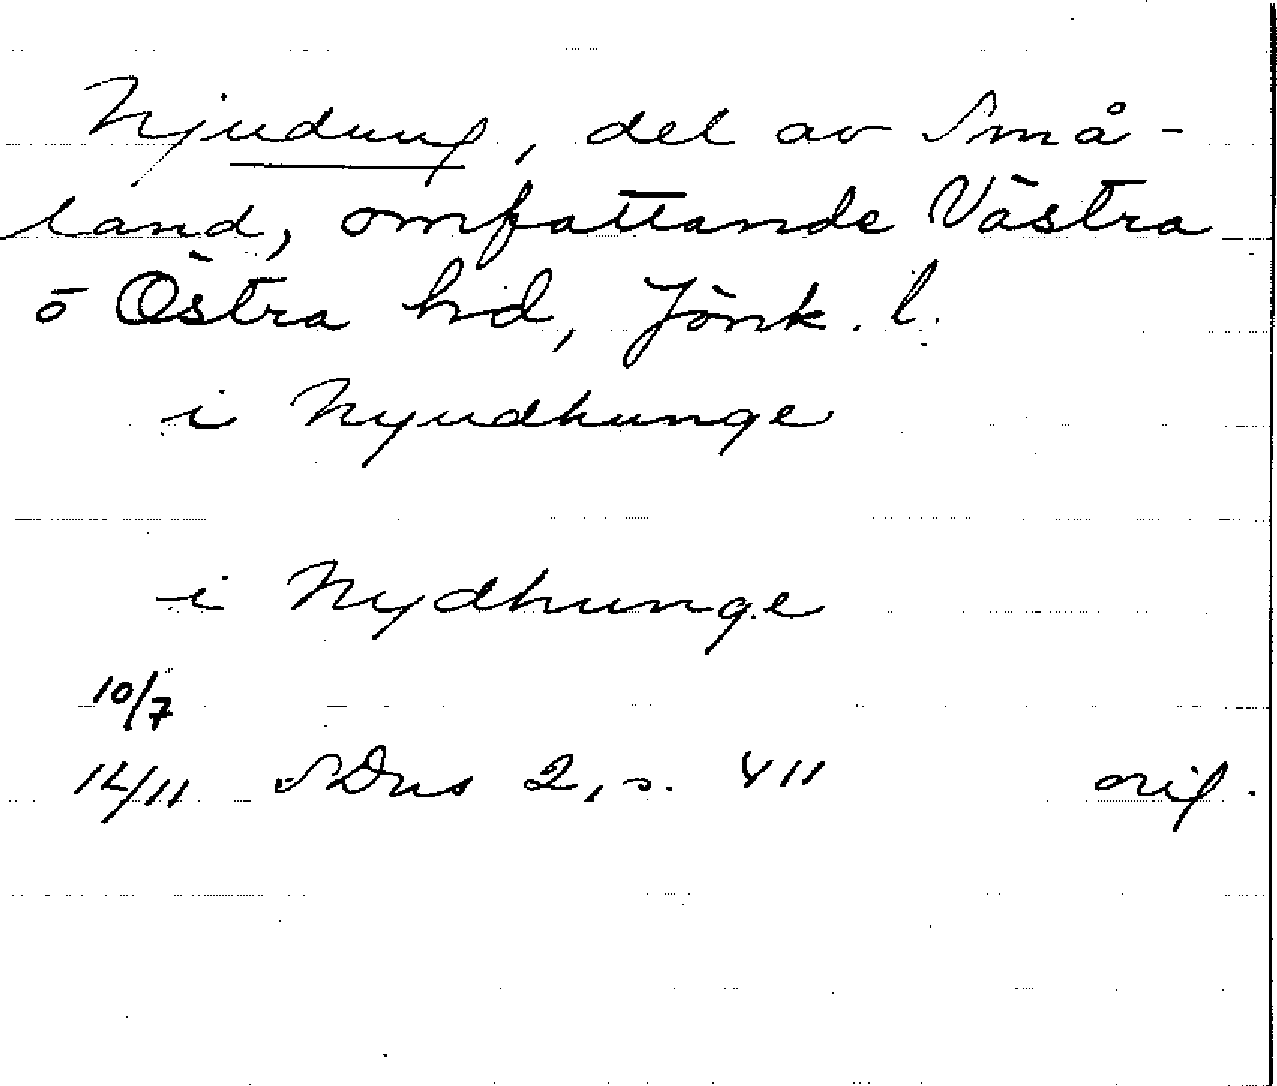 Njudung, del av Små-
land, omfattande Västra
o Östra hd, Jönk. l.
i Nyudhunge
i Nydhunge
10/7
12/11 SDns 2, s. 411 orig.